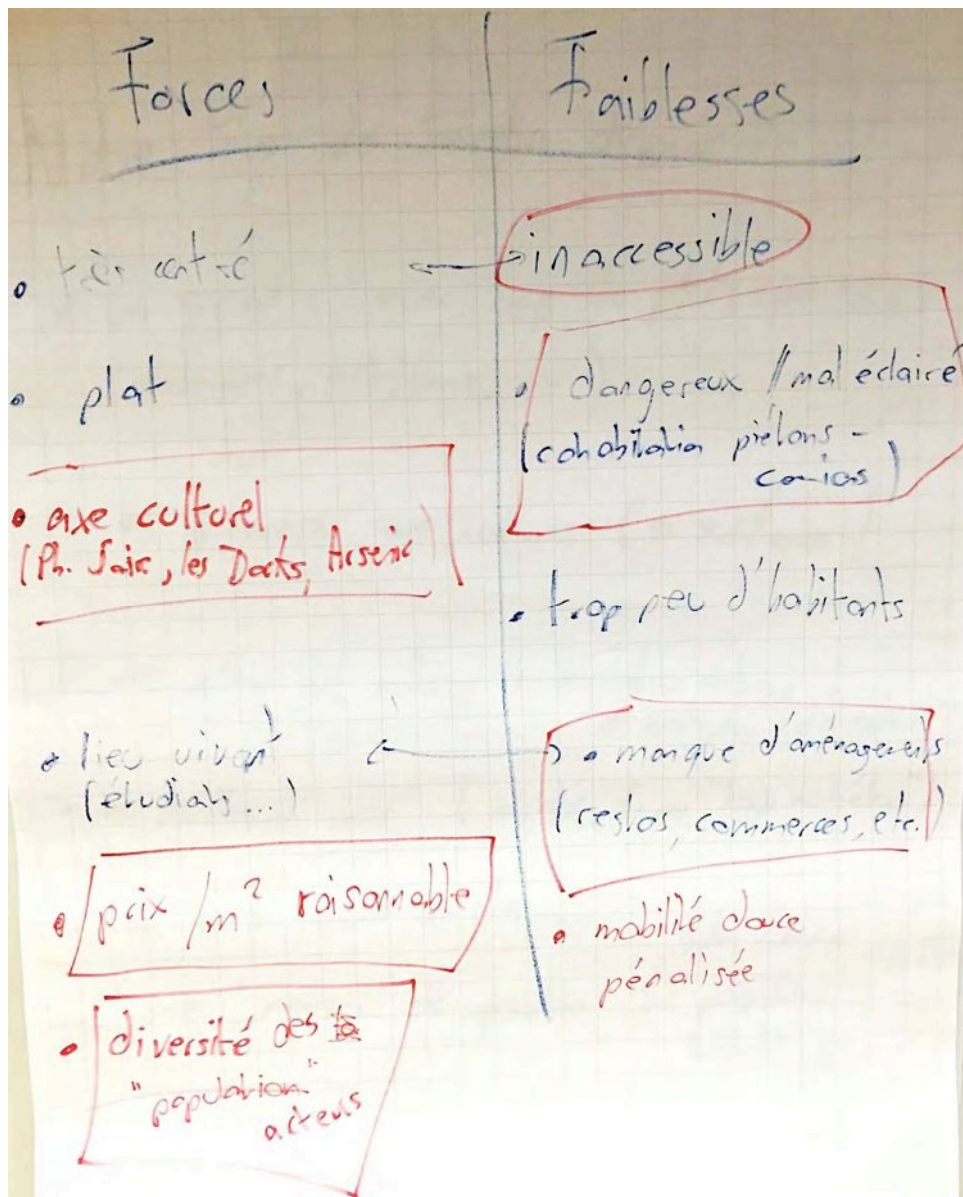 Forces
• très centré
• plat
• axe culturel
(Ph. , les Docks, Arsenic)
• lieu vivant
(étudiants...)
• prix /m² raisonnable
• diversité des
"population"
acteurs
Faiblesses
inaccessible
• dangereux / mal éclairé
(cohabitation piétons -
camions)
• trop peu d'habitants
• manque d'aménagements
(restos, commerces, etc.)
• mobilité douce
pénalisée